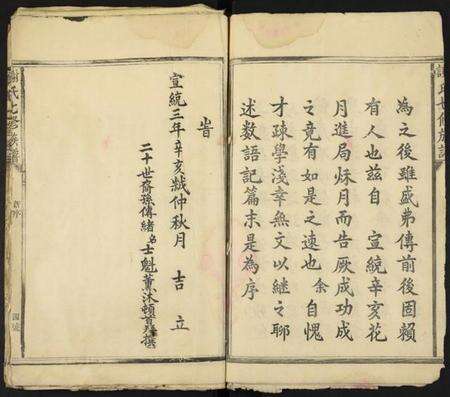 謝氏七修族譜
為之後雖盛弗傳前後固賴
有人也兹自 宣統辛亥花
月進局秌月而告厥成功成
之竟有如是之速也余自愧
才疎學淺幸無文以継之聊
述数語記篇末是為序
旹
宣統三年辛亥歲仲秋月 吉 立
二十世裔孫傳緒名士魁薰沐頓首撰
謝氏七修族譜